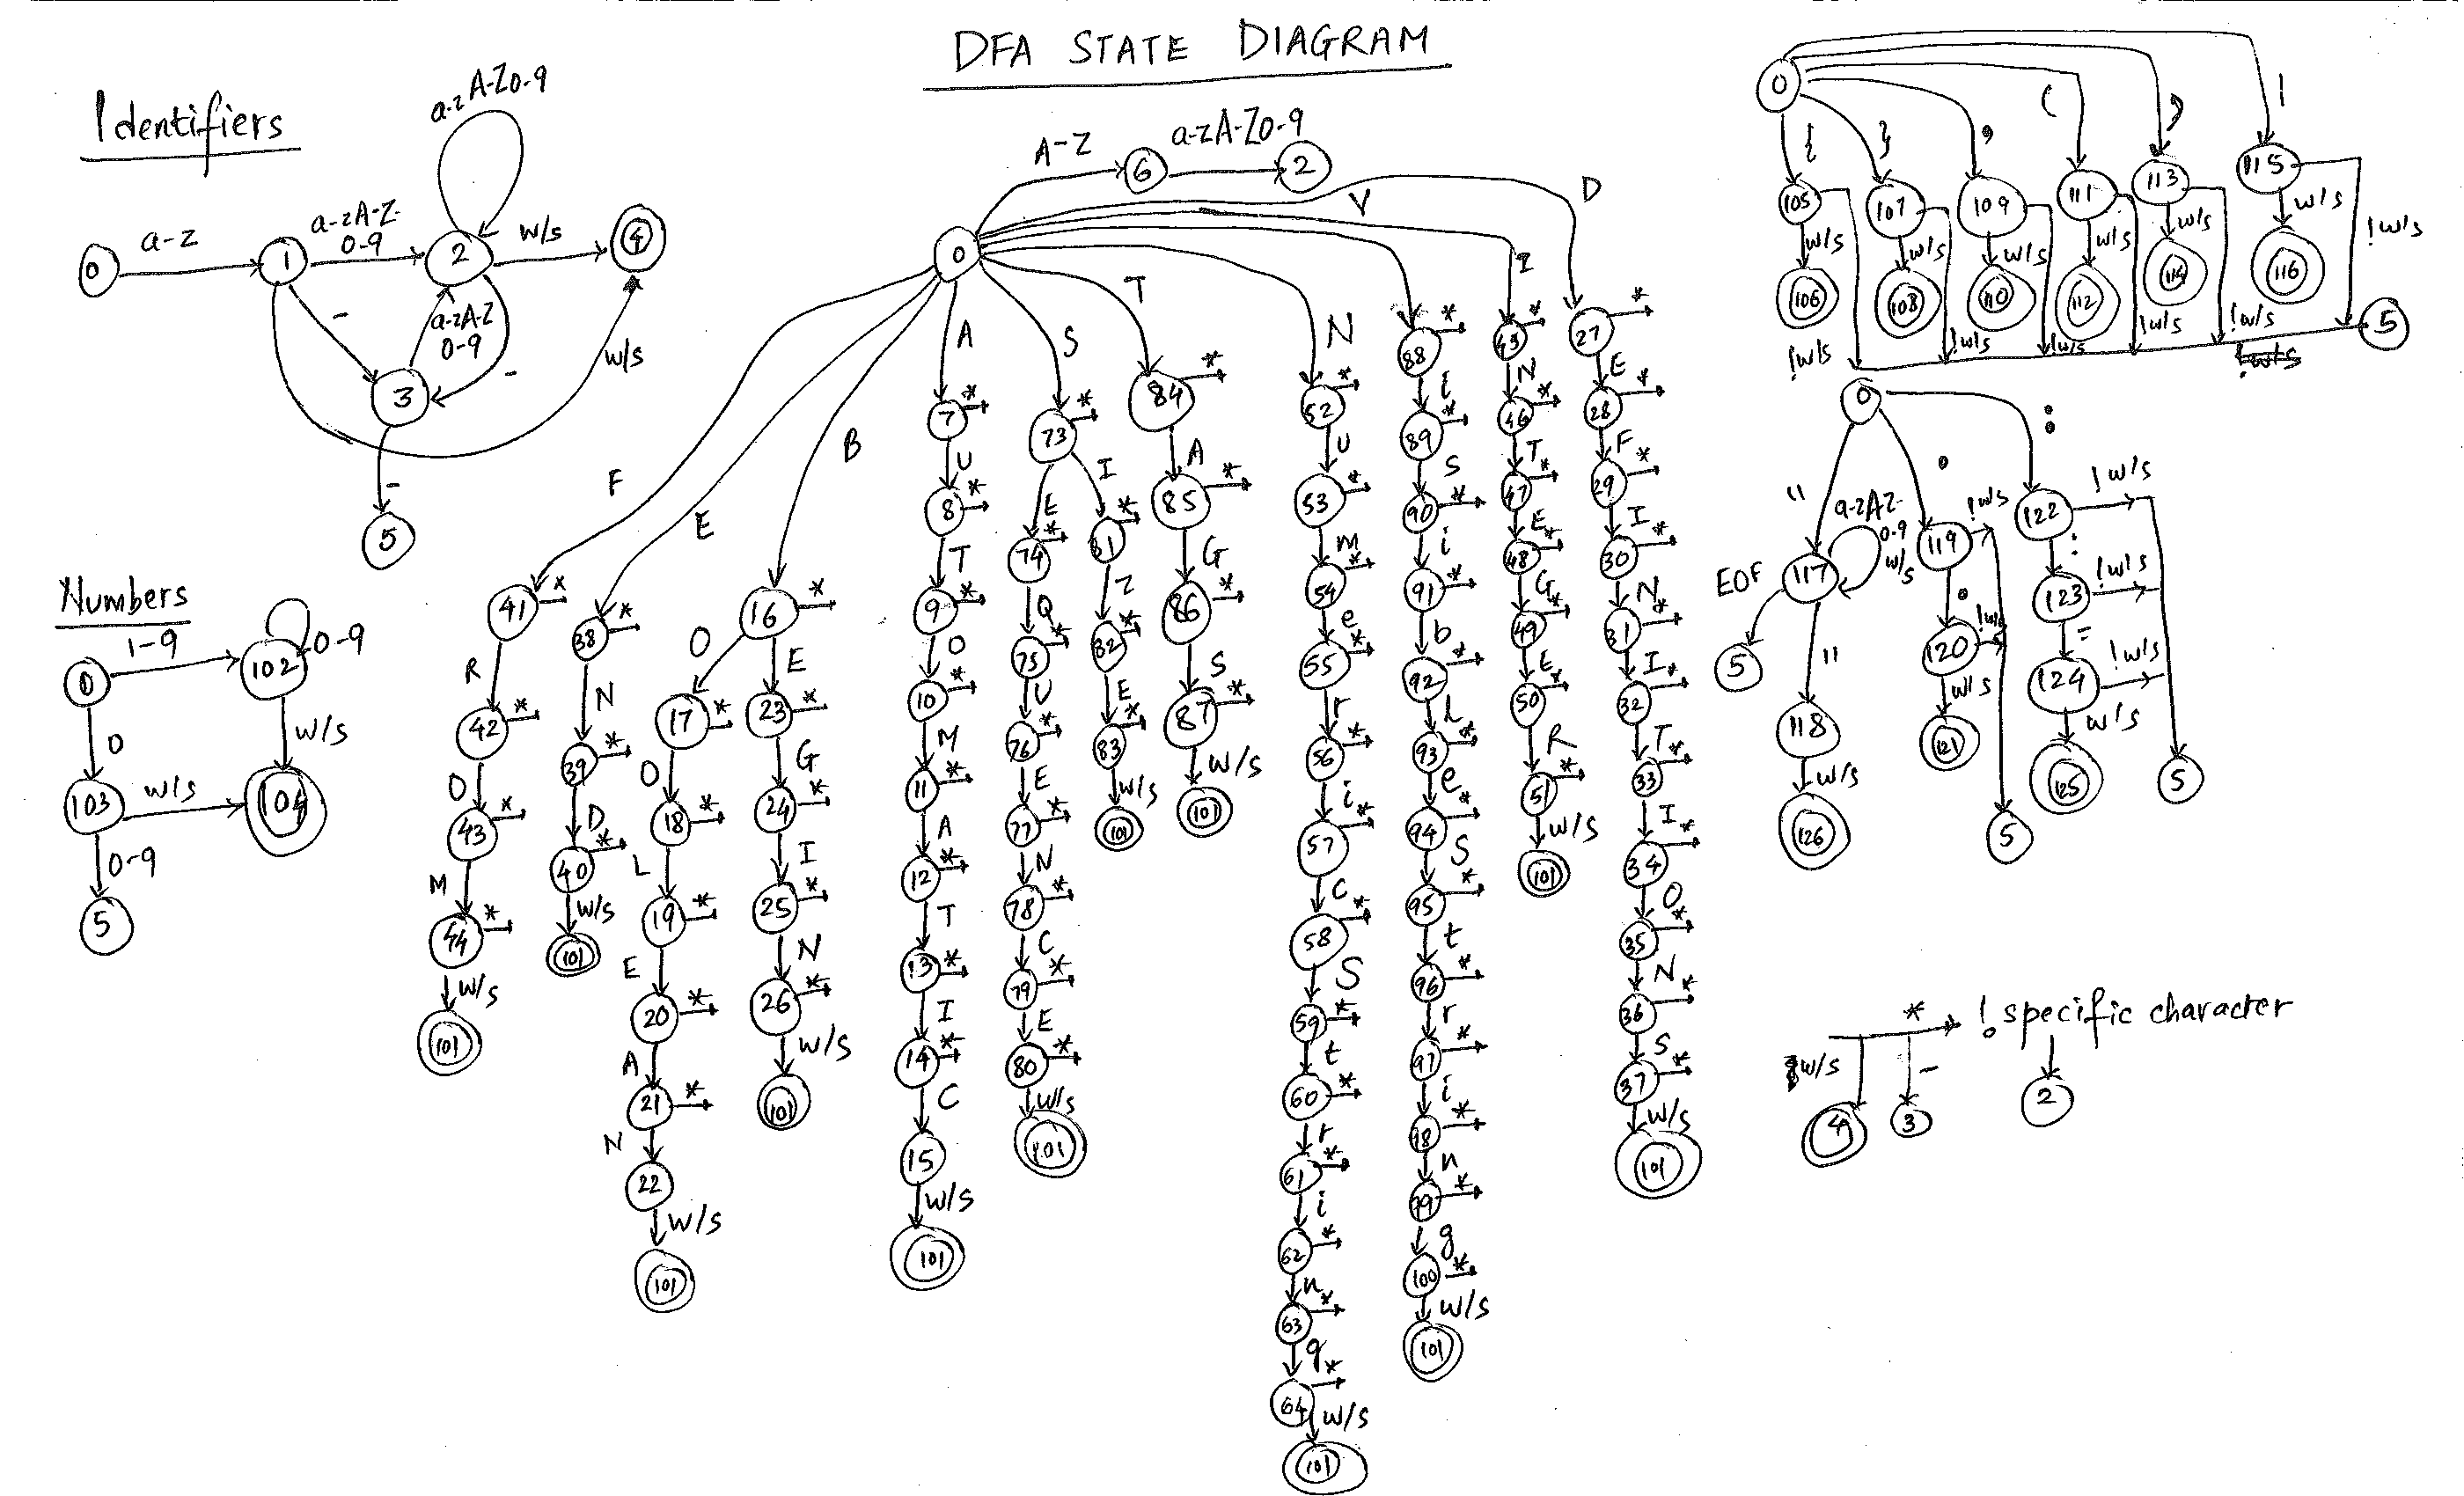 DFA STATE DIAGRAM
Identifiers
a-zA-Z0-9
0
a-z
1
a-zA-Z-
0-9
2
w/s
4
-
a-zA-Z
0-9
-
w/s
3
-
5
Numbers
1-9
0-9
0
102
0
w/s
103
w/s
104
0-9
5
A-Z
6
a-zA-Z0-9
2
0
F
41 *
R
42 *
O
43 *
M
44 *
w/s
101
E
38 *
N
39 *
D
40 *
w/s
101
B
16 *
O
17 *
O
18 *
L
19 *
E
20 *
A
21 *
N
22
w/s
101
E
23 *
G
24 *
I
25 *
N
26 *
w/s
101
A
7 *
U
8 *
T
9 *
O
10 *
M
11 *
A
12 *
T
13 *
I
14 *
C
15
w/s
101
S
73 *
E
74 *
Q
75 *
U
76 *
E
77 *
N
78 *
C
79 *
E
80 *
w/s
101
I
81 *
Z
82 *
E
83 *
w/s
101
T
84 *
A
85 *
G
86 *
S
87 *
w/s
101
N
52 *
U
53 *
m
54 *
e
55 *
r
56 *
i
57 *
c
58 *
S
59 *
t
60 *
r
61 *
i
62 *
n
63 *
g
64 *
w/s
101
V
88 *
i
89 *
s
90 *
i
91 *
b
92 *
l
93 *
e
94 *
S
95 *
t
96 *
r
97 *
i
98 *
n
99 *
g
100 *
w/s
101
I
45 *
N
46 *
T
47 *
E
48 *
G
49 *
E
50 *
R
51 *
w/s
101
D
27 *
E
28 *
F
29 *
I
30 *
N
31 *
I
32 *
T
33 *
I
34 *
O
35 *
N
36 *
S
37 *
w/s
101
0
{
}
,
(
)
|
105
107
109
111
113
115
w/s
w/s
w/s
w/s
w/s
w/s
106
108
110
112
114
116
!w/s
!w/s
!w/s
!w/s
!w/s
!w/s
5
0
"
a-zAZ-
0-9
w/s
117
EOF
5
"
118
w/s
126
.
119
!w/s
.
120
!w/s
w/s
121
5
:
122
!w/s
:
123
!w/s
=
124
!w/s
w/s
125
5
* ! specific character
w/s
-
4
3
2